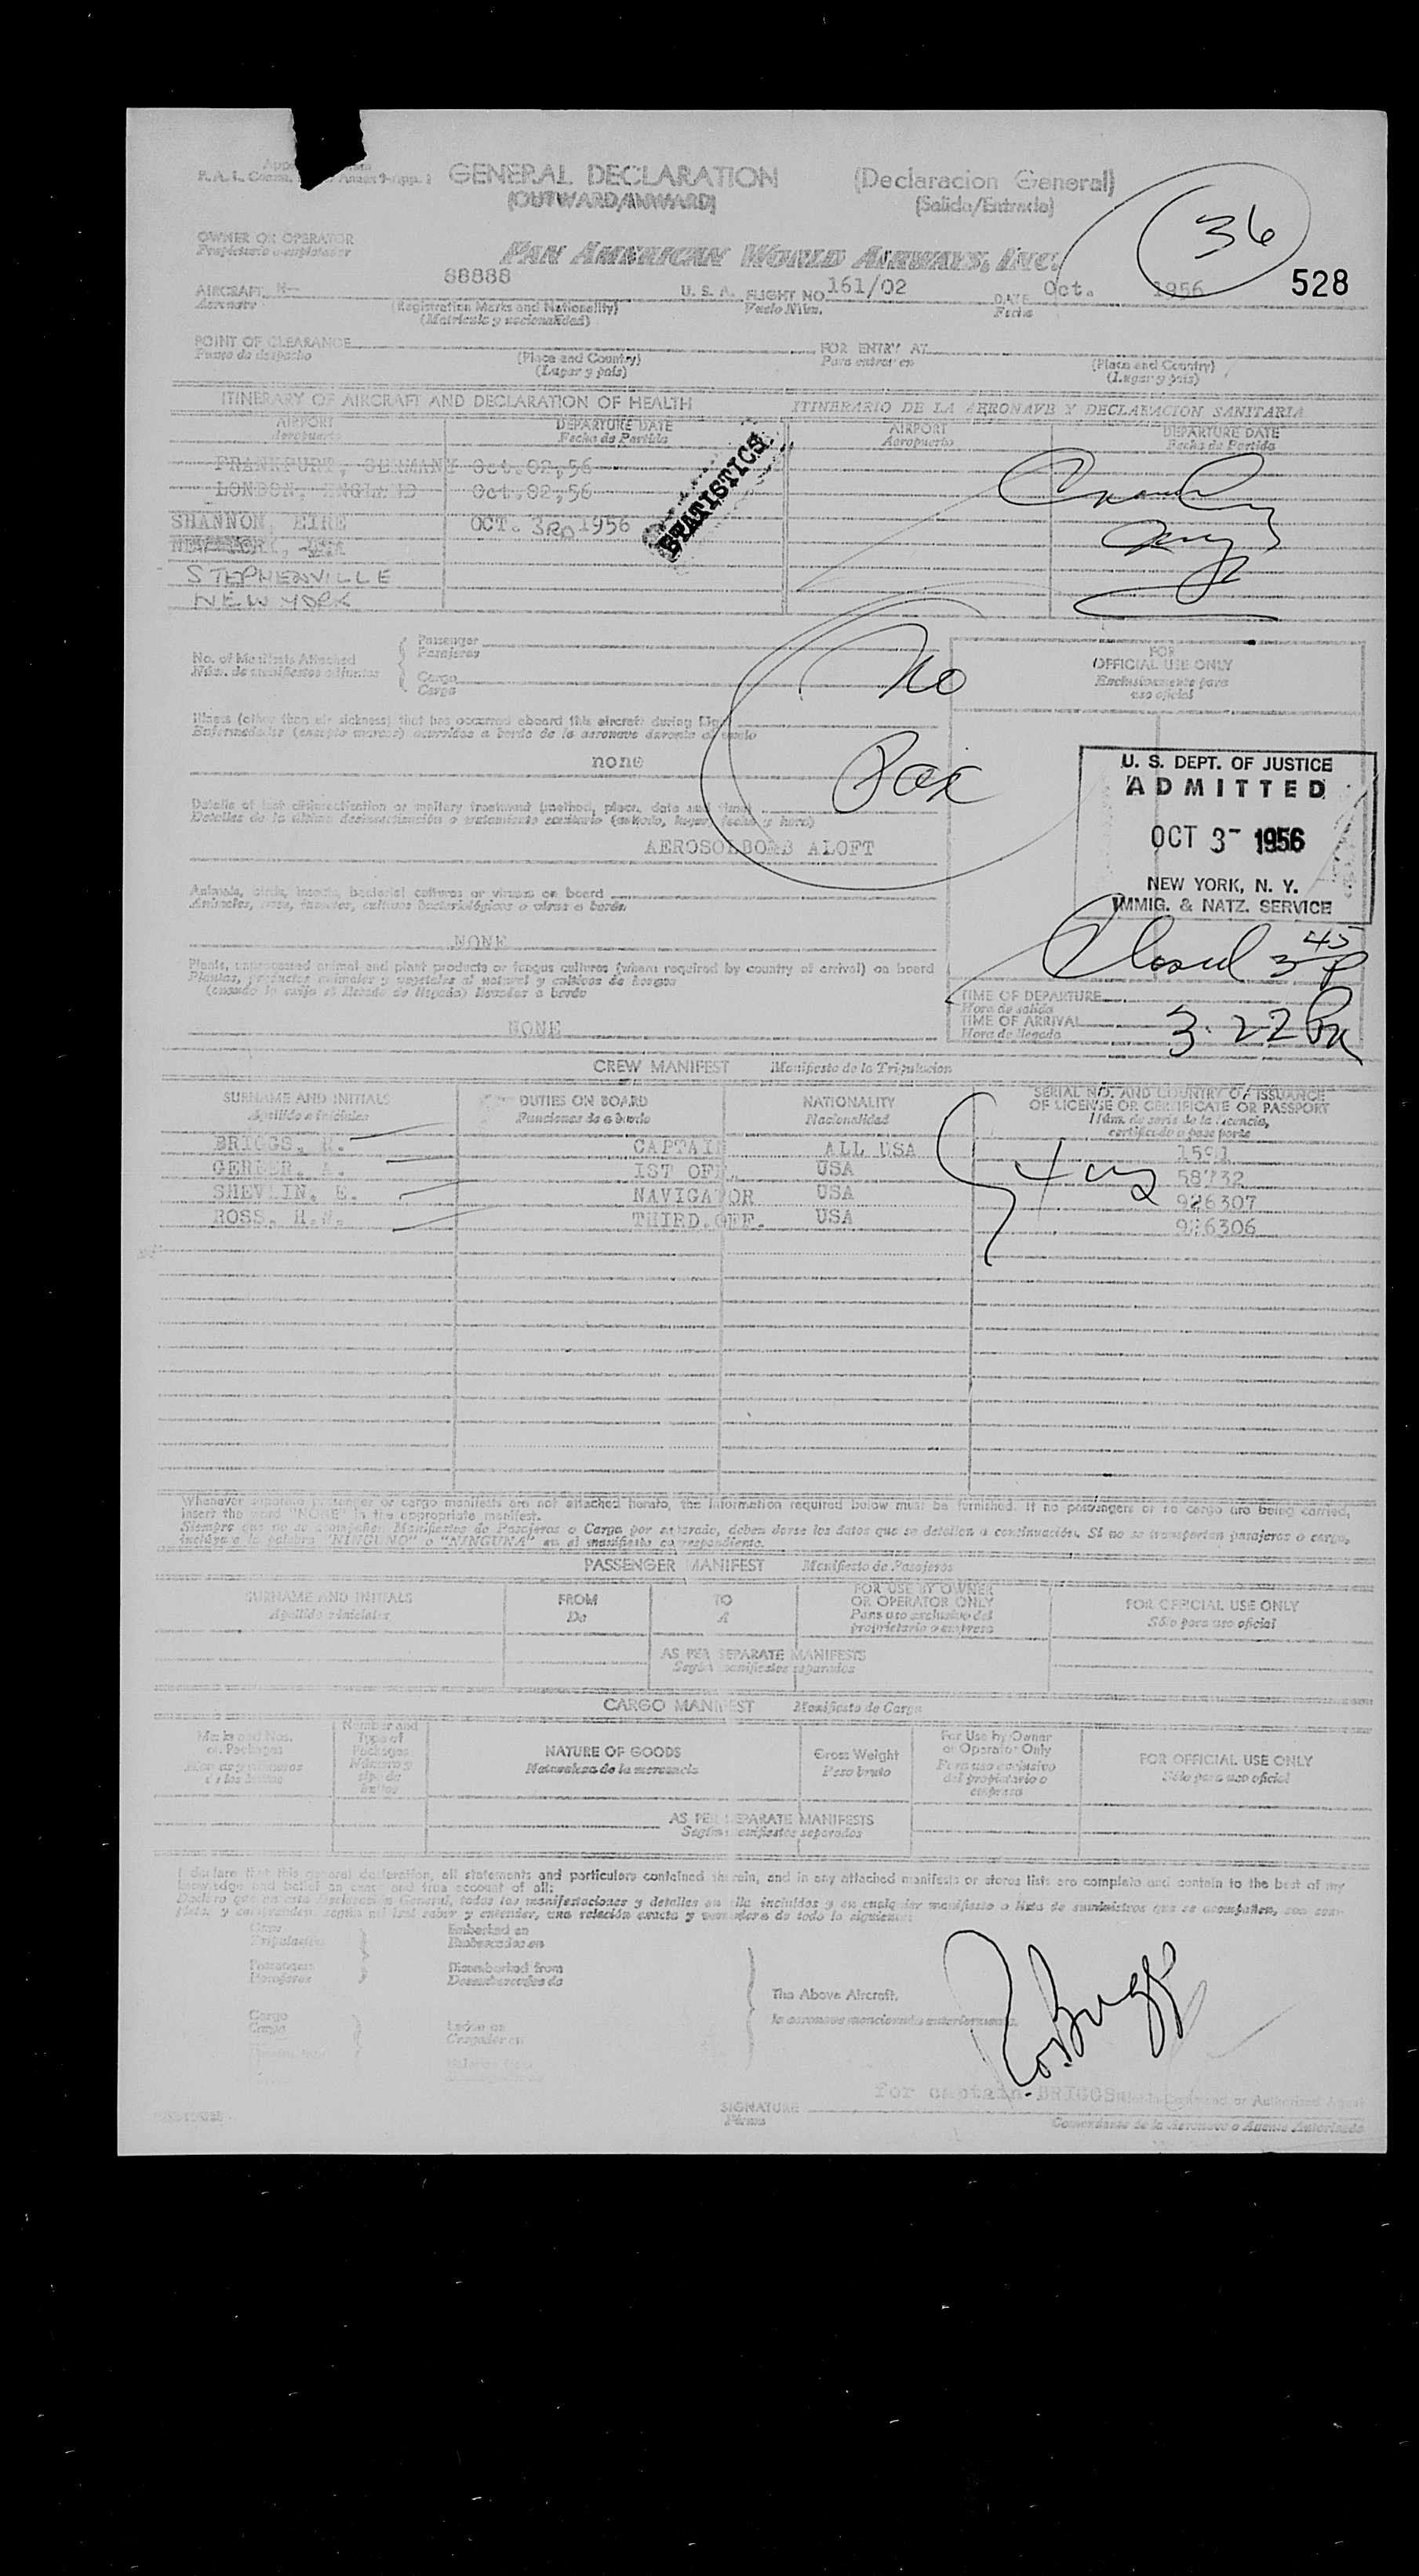 GENERAL DECLARATION (Declaracion General)
(OUTWARD/INWARD) (Salida/Entrada)
36
OWNER OR OPERATOR
Propietario o explotador
PAN AMERICAN WORLD AIRWAYS, INC.
528
AIRCRAFT N- 88888 U. S. A. FLIGHT NO. 161/02 DATE Oct. 1956
Aeronave (Registration Marks and Nationality) Vuelo Núm. Fecha
(Matricula y nacionalidad)
POINT OF CLEARANCE FOR ENTRY AT
Punto de despacho (Place and Country) Para entrar en (Place and Country)
(Lugar y país) (Lugar y país)
ITINERARY OF AIRCRAFT AND DECLARATION OF HEALTH ITINERARIO DE LA AERONAVE Y DECLARACION SANITARIA
AIRPORT DEPARTURE DATE AIRPORT DEPARTURE DATE
Aeropuerto Fecha de Partida Aeropuerto Fecha de Partida
FRANKFURT, GERMANY Oct.02,56
LONDON, ENGLAND Oct.02,56
STATISTICS
SHANNON, EIRE OCT. 3RD 1956
NEW YORK, USA
STEPHENVILLE
NEW YORK
No. of Manifests Attached
Núm. de manifiestos adjuntos
Passenger
Pasajeros
Cargo
Carga
No
Pax
FOR
OFFICIAL USE ONLY
Exclusivamente para
uso oficial
Illness (other than air sickness) that has occurred aboard this aircraft during
Enfermedades (excepto mareos) ocurridas a bordo de la aeronave durante el vuelo
none
Details of last disinsectization or sanitary treatment (method, place, date and time)
Detalles de la última desinsectización o tratamiento sanitario (método, lugar, fecha y hora)
AEROSOLBOMB ALOFT
U. S. DEPT. OF JUSTICE
ADMITTED
OCT 3- 1956
NEW YORK, N. Y.
IMMIG. & NATZ. SERVICE
Closed 3 45 P
Animals, birds, insects, bacterial cultures or viruses on board
Animales, aves, insectos, cultivos bacteriológicos o virus a bordo.
NONE
Plants, unprocessed animal and plant products or fungus cultures (where required by country of arrival) on board
(cuando lo exija el Estado de llegada) llevados a bordo
NONE
TIME OF DEPARTURE
Hora de salida
TIME OF ARRIVAL 3.22 Pm
Hora de llegada
CREW MANIFEST Manifiesto de la Tripulacion
SURNAME AND INITIALS DUTIES ON BOARD NATIONALITY SERIAL NO. AND COUNTRY OF ISSUANCE
Apellido e iniciales Funciones de a bordo Nacionalidad OF LICENSE OR CERTIFICATE OR PASSPORT
Núm. de serie de la licencia,
certificado o pasaporte
BRIGGS, R. CAPTAIN ALL USA 1591
GERBER, A. 1ST OFF. USA 58732
SHEVLIN, E. NAVIGATOR USA 926307
ROSS, H.W. THIRD.OFF. USA 926306
Whenever separate passenger or cargo manifests are not attached hereto, the information required below must be furnished. If no passengers or no cargo are being carried,
insert the word "NONE" in the appropriate manifest.
Siempre que no se acompañen Manifiestos de Pasajeros o Carga por separado, deben darse los datos que se detallen a continuación. Si no se transportan pasajeros o carga,
incluya la palabra "NINGUNO" o "NINGUNA" en el manifiesto correspondiente.
PASSENGER MANIFEST Manifiesto de Pasajeros
SURNAME AND INITIALS FROM TO FOR USE BY OWNER FOR OFFICIAL USE ONLY
Apellido e iniciales De A OR OPERATOR ONLY Sólo para uso oficial
Para uso exclusivo del
propietario o empresa
AS PER SEPARATE MANIFESTS
Según manifiestos separados
CARGO MANIFEST Manifiesto de Carga
Marks and Nos. of Packages
Number and Type of Packages
Número y tipo de bultos
NATURE OF GOODS
Naturaleza de la mercancia
Gross Weight
Peso bruto
For Use by Owner or Operator Only
Para uso exclusivo del propietario o empresa
FOR OFFICIAL USE ONLY
Sólo para uso oficial
AS PER SEPARATE MANIFESTS
Según manifiestos separados
I declare that this general declaration, all statements and particulars contained therein, and in any attached manifests or stores lists are complete and contain to the best of my
knowledge and belief an exact and true account of all:
Crew
Tripulación
Passengers
Pasajeros
Embarked on
Embarcados en
Disembarked from
Desembarcados de
Cargo
Carga
Laden on
Cargados en
The Above Aircraft.
la aeronave mencionada anteriormente.
R.Briggs
for captain BRIGGS
SIGNATURE
Firma
Comandante de la Aeronave o Agente Autorizado